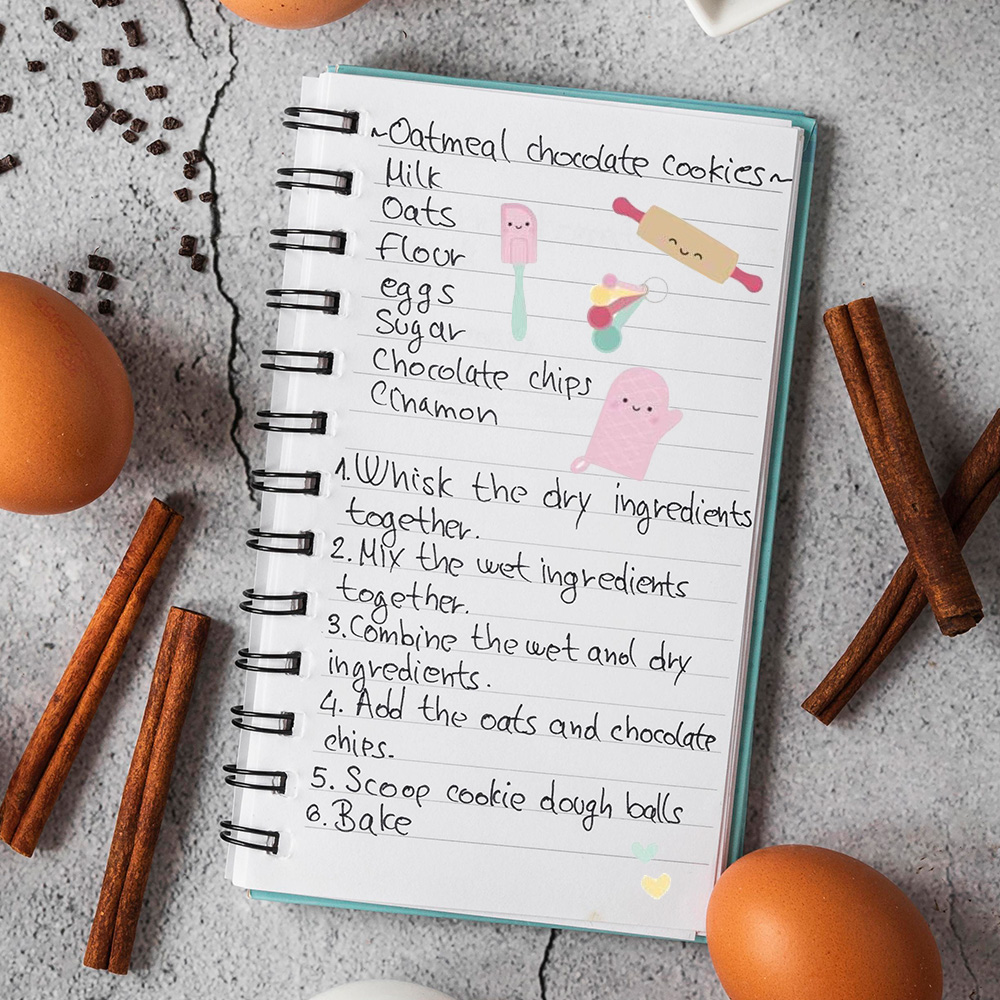 ~Oatmeal chocolate cookies~
Milk
Oats
flour
eggs
Sugar
Chocolate chips
Cinamon
1.Whisk the dry ingredients
together.
2.Mix the wet ingredients
together.
3.Combine the wet and dry
ingredients.
4. Add the oats and chocolate
chips.
5. Scoop cookie dough balls
6. Bake